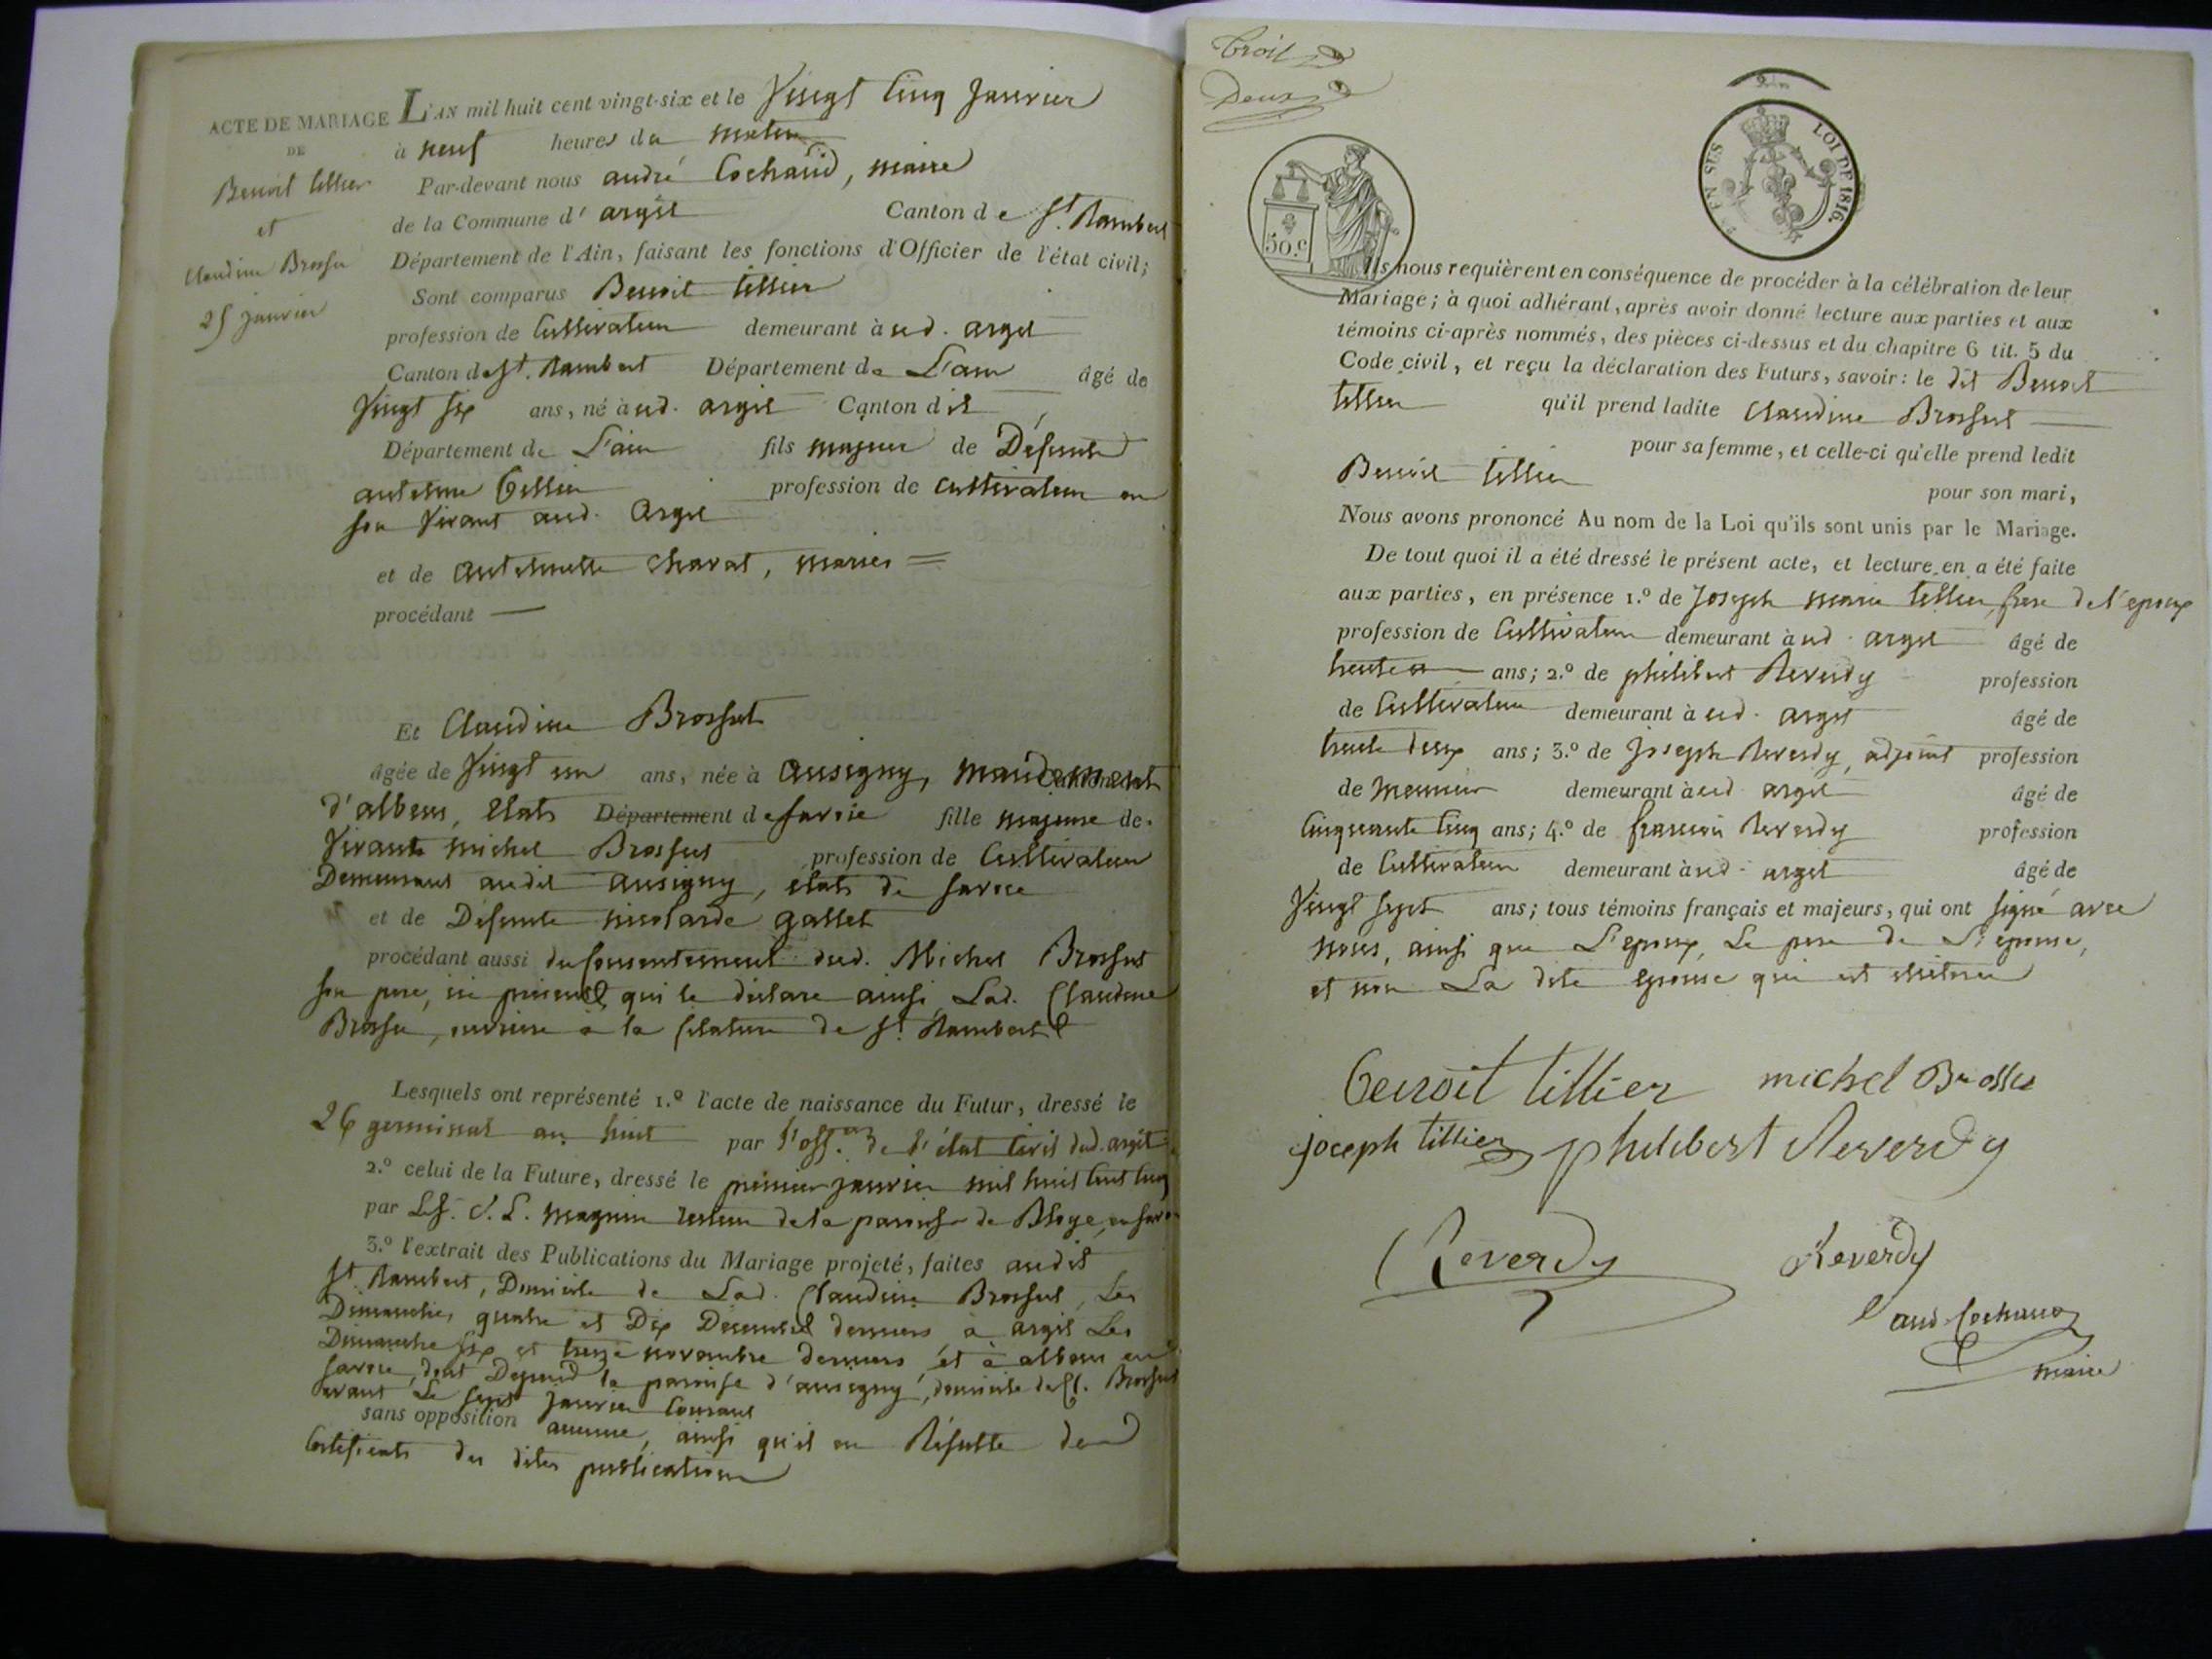 ACTE DE MARIAGE
DE
Benoit tillier
et
Claudine Brossu
25 janvier
L'AN mil huit cent vingt-six et le vingt cinq janvier
à neuf heures du matin
Par-devant nous andré Cochaud, maire
de la Commune d' argis Canton de St. Rambert
Département de l'Ain, faisant les fonctions d'Officier de l'état civil;
Sont comparus Benoit tillier
profession de Cultivateur demeurant à ud. argis
Canton de St. Rambert Département de L'ain âgé de
vingt six ans, né à ud. argis Canton dit
Département de L'ain fils majeur de Défunts
antelme tillier profession de cultivateur en
son vivant aud. argis
et de antelmette Charat, mariés =
procédant —
Et Claudine Brossut
âgée de vingt un ans, née à ausigny, mandement
d'albens, Etats Département de Savoie fille majeure de
vivants michel Brossut profession de Cultivateur
Demeurant audit ausigny, états de Savoie
et de Défunte nicolarde gallet
procédant aussi du consentement dud. Michel Brossut
son père, ici présent, qui le déclare ainsi, Lad. Claudine
Brossu, ouvrière à la filature de St. Rambert
Lesquels ont représenté 1.º l'acte de naissance du Futur, dressé le
26 germinal an huit par l'off.er de l'état civil dud. argis
2.º celui de la Future, dressé le premier janvier mil huit cent cinq
par magnin recteur de la paroisse de Bloye, en
3.º l'extrait des Publications du Mariage projeté, faites audit
St. Rambert, Domicile de Lad. Claudine Brossut, Les
Dimanches, quatre et Dix Décembre derniers à argis Les
Dimanche six et treize novembre derniers et à albens en
Savoie, dont Dépend la paroisse d'ausigny, domicile de Cl. Brossut
avant Le sept janvier Courant
sans opposition aucune, ainsi qu'il en Résulte des
Certificats des dites publications
Troil
Deux
50.c
LOI DE 1816.
Ils nous requièrent en conséquence de procéder à la célébration de leur
Mariage; à quoi adhérant, après avoir donné lecture aux parties et aux
témoins ci-après nommés, des pièces ci-dessus et du chapitre 6 tit. 5 du
Code civil, et reçu la déclaration des Futurs, savoir: le dit Benoit
tillier qu'il prend ladite Claudine Brossut
pour sa femme, et celle-ci qu'elle prend ledit
Benoit tillier pour son mari,
Nous avons prononcé Au nom de la Loi qu'ils sont unis par le Mariage.
De tout quoi il a été dressé le présent acte, et lecture en a été faite
aux parties, en présence 1.º de Joseph marie tillier frère de l'époux
profession de Cultivateur demeurant à ud. argis âgé de
trente ans; 2.º de philibert Reverdy profession
de Cultivateur demeurant à ud. argis âgé de
trente deux ans; 3.º de Joseph Reverdy, adjoint profession
de meunier demeurant à ud argis âgé de
cinquante cinq ans; 4.º de françois Reverdy profession
de Cultivateur demeurant à ud. argis âgé de
vingt sept ans; tous témoins français et majeurs, qui ont signé avec
nous, ainsi que L'époux, Le père de L'épouse,
et non La dite épouse qui est illitérée
Benoit tillier michel Brossu
joseph tillier philibert Reverdy
Reverdy Reverdy
and Cochaud
maire